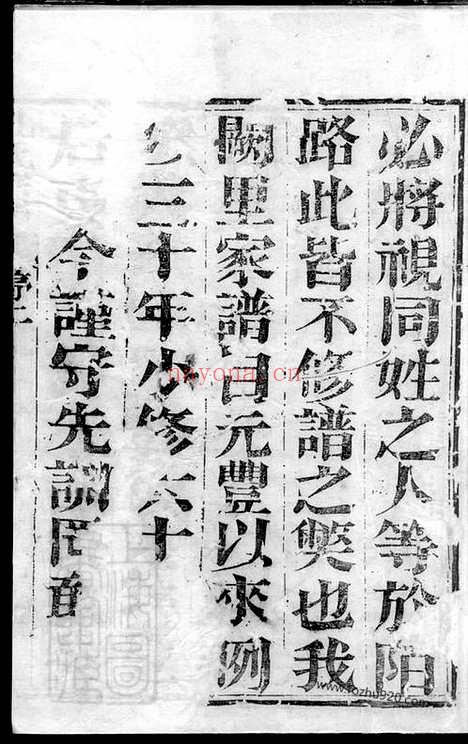 必將視同姓之人等於陌
路此皆不修譜之獘也我
闕里家譜自元豐以來例
三十年小修六十
今謹守先訓
nayona.cn
www.fozhu920.com